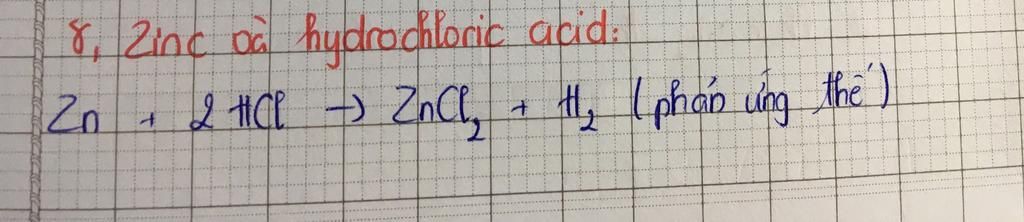 8, Zinc và hydrochloric acid:
Zn + 2 HCl → ZnCl₂ + H₂ (phản ứng thế)